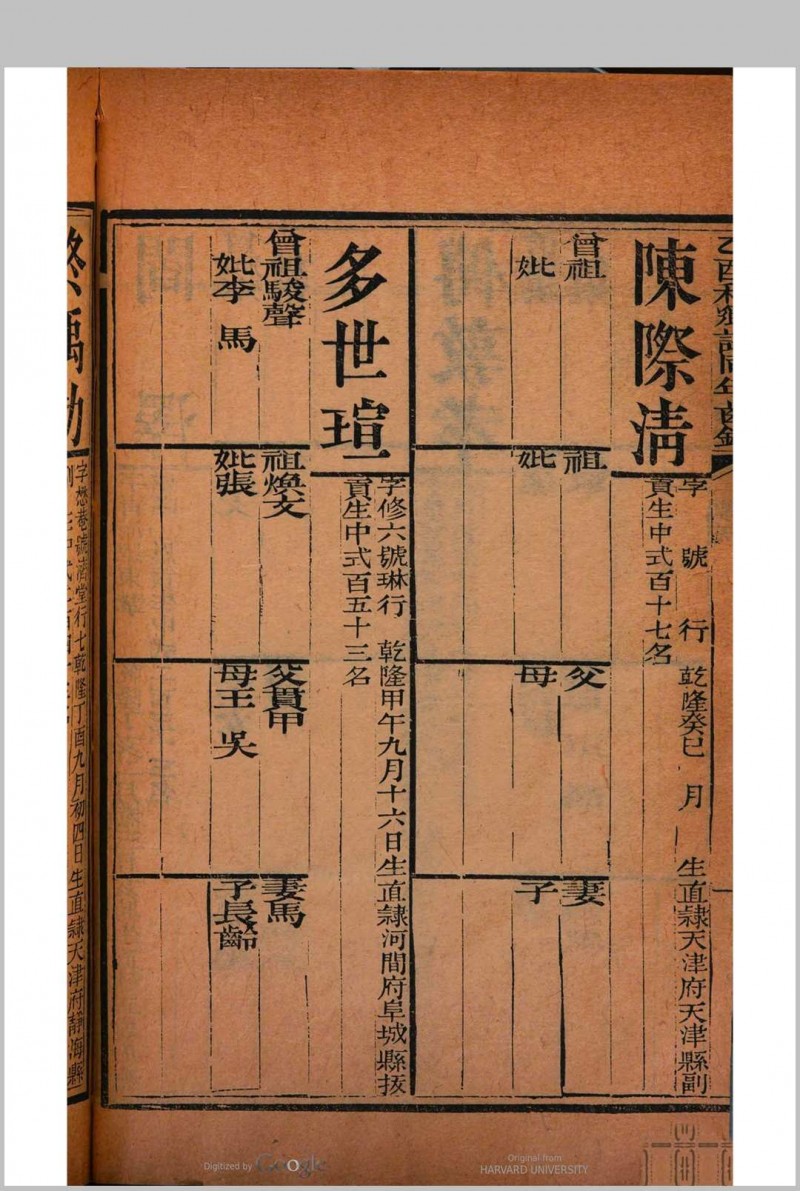 乙酉科鄉試同年齒錄
陳際清
字　號　行　乾隆癸巳　月　生直隸天津府天津縣副
貢生中式百十七名
曾祖
妣
祖
妣
父
母
妻
子
多世瑄
字修六號琳行　乾隆甲午九月十六日生直隸河間府阜城縣拔
貢生中式百五十三名
曾祖駿聲
妣李　馬
祖煥文
妣張
父貫甲
母王　吳
妻馬
子長齡
字懋菴號濤堂行七乾隆丁酉九月初四日生直隸天津府靜海縣
Digitized by Google
Original from
HARVARD UNIVERSITY